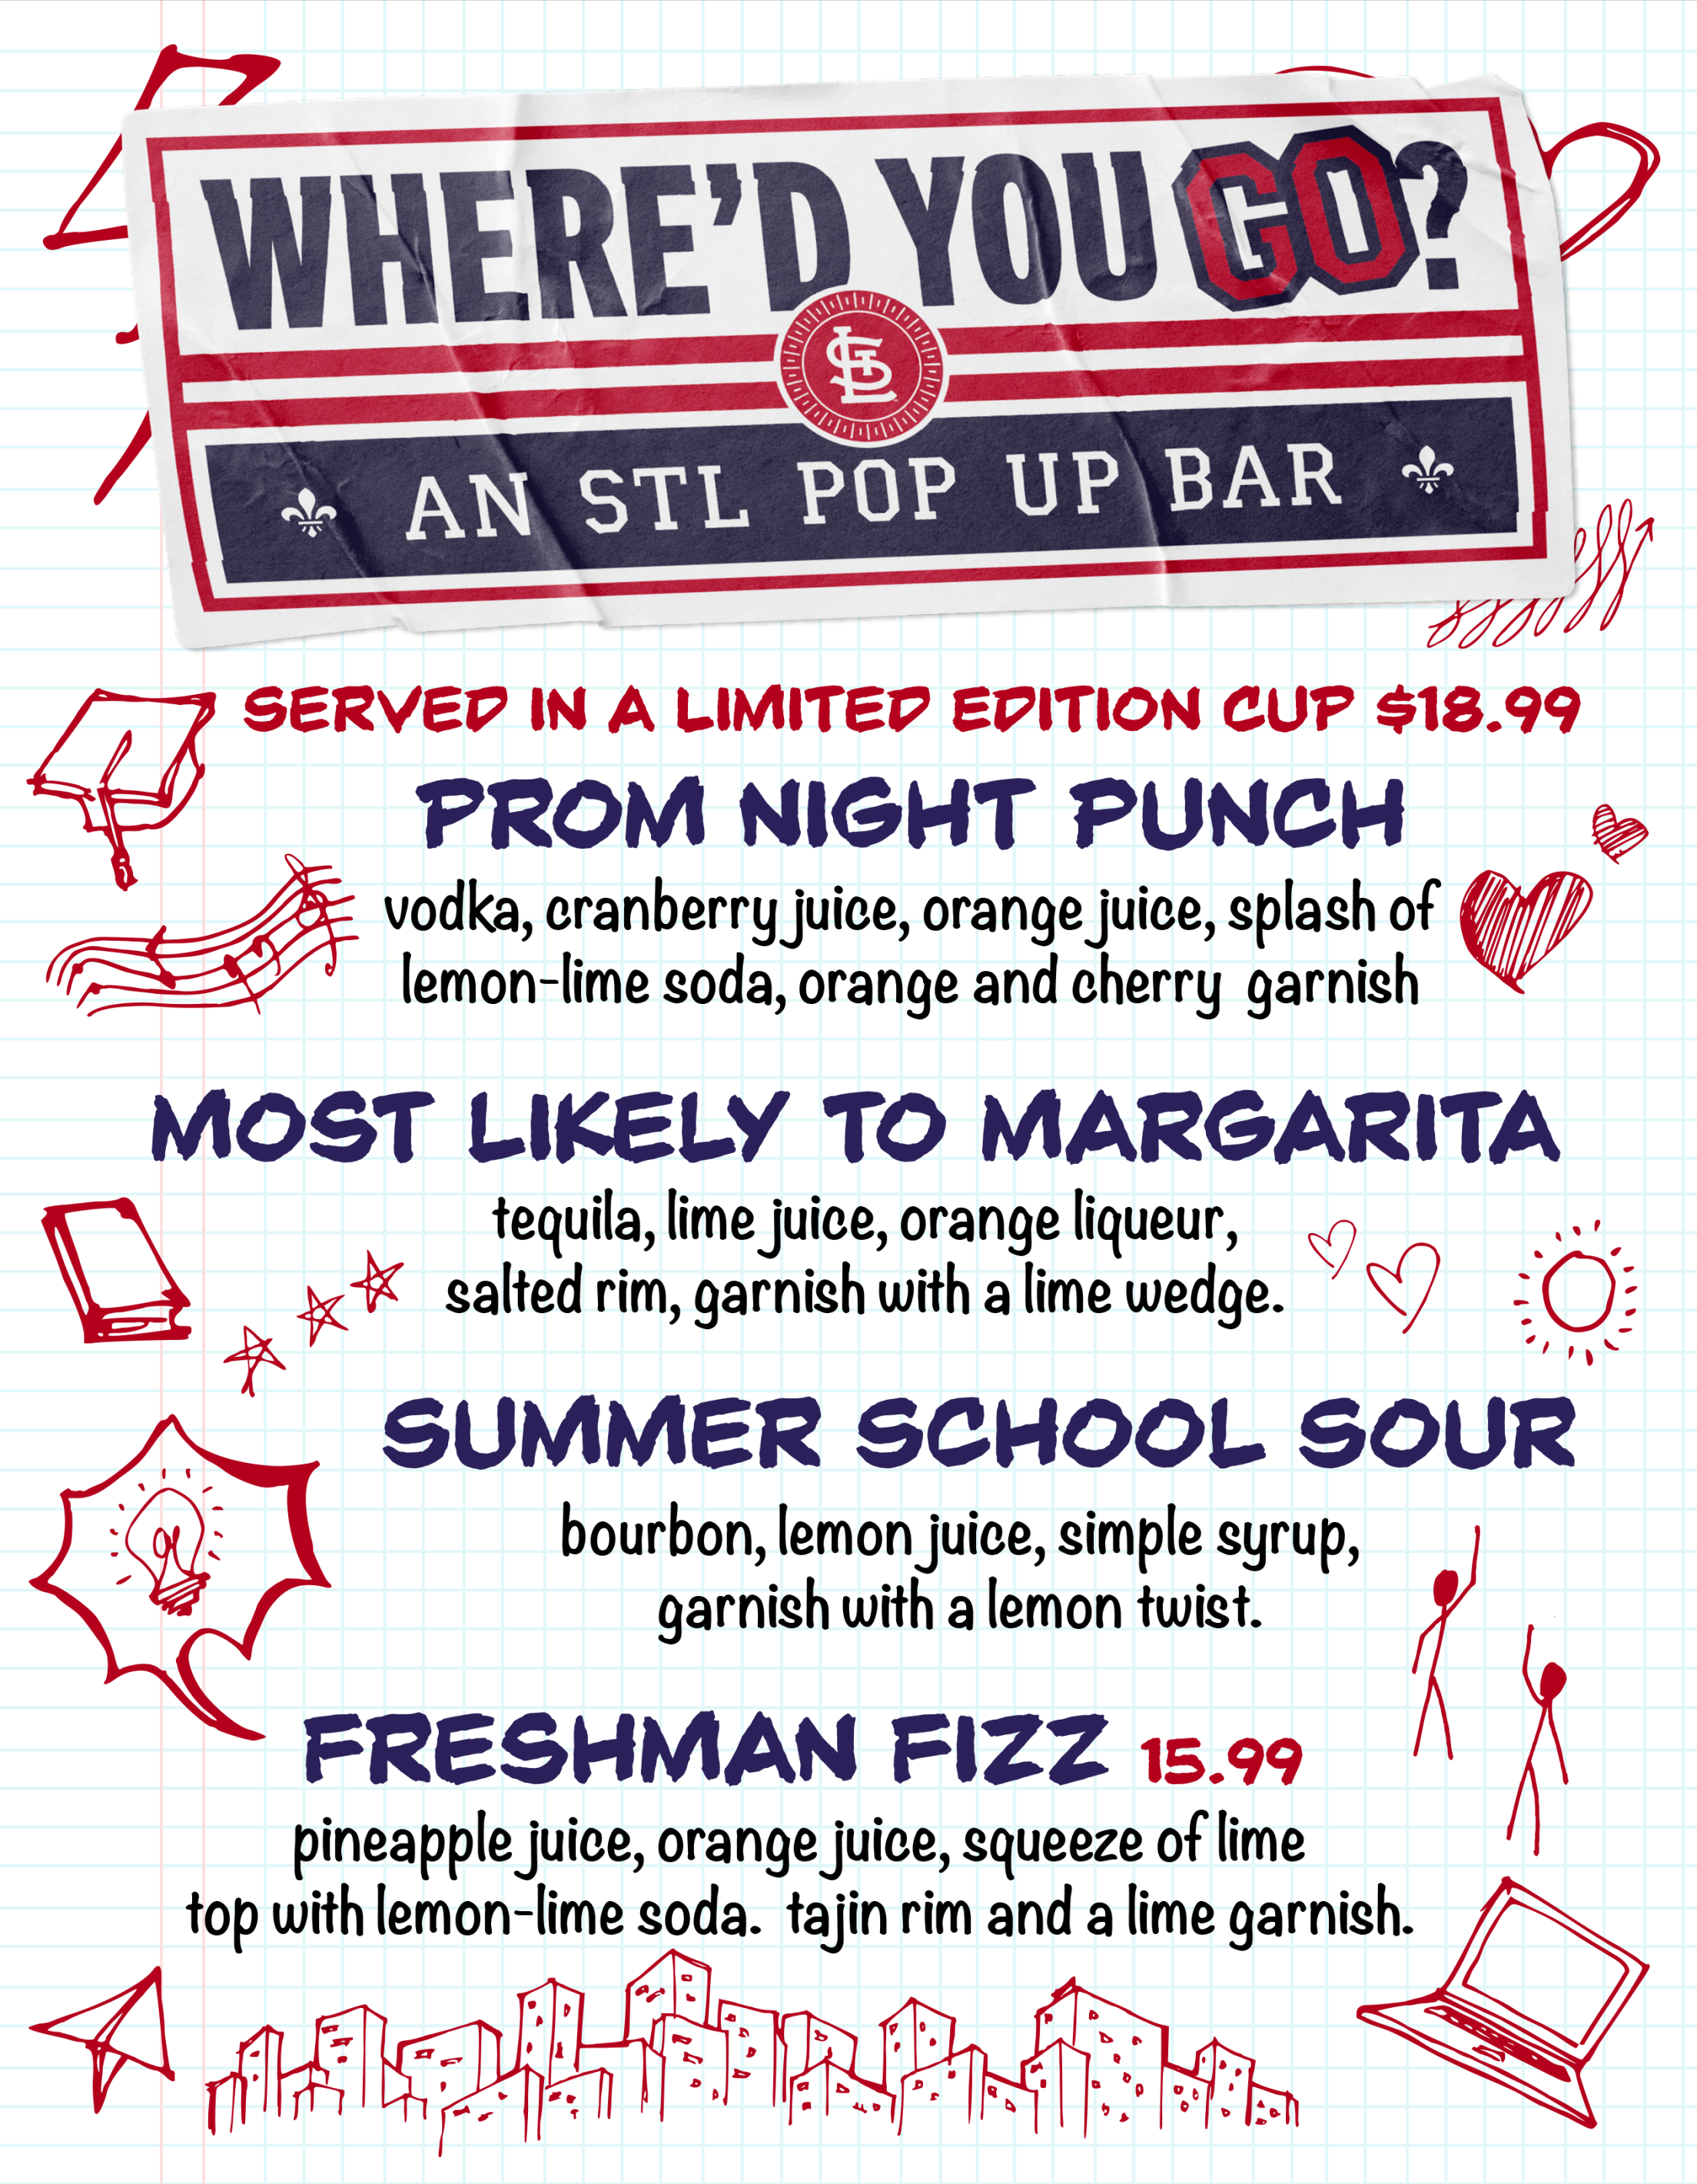 WHERE'D YOU GO?
STL
AN STL POP UP BAR
SERVED IN A LIMITED EDITION CUP $18.99
PROM NIGHT PUNCH
vodka, cranberry juice, orange juice, splash of
lemon-lime soda, orange and cherry garnish
MOST LIKELY TO MARGARITA
tequila, lime juice, orange liqueur,
salted rim, garnish with a lime wedge.
SUMMER SCHOOL SOUR
bourbon, lemon juice, simple syrup,
garnish with a lemon twist.
FRESHMAN FIZZ 15.99
pineapple juice, orange juice, squeeze of lime
top with lemon-lime soda. tajin rim and a lime garnish.